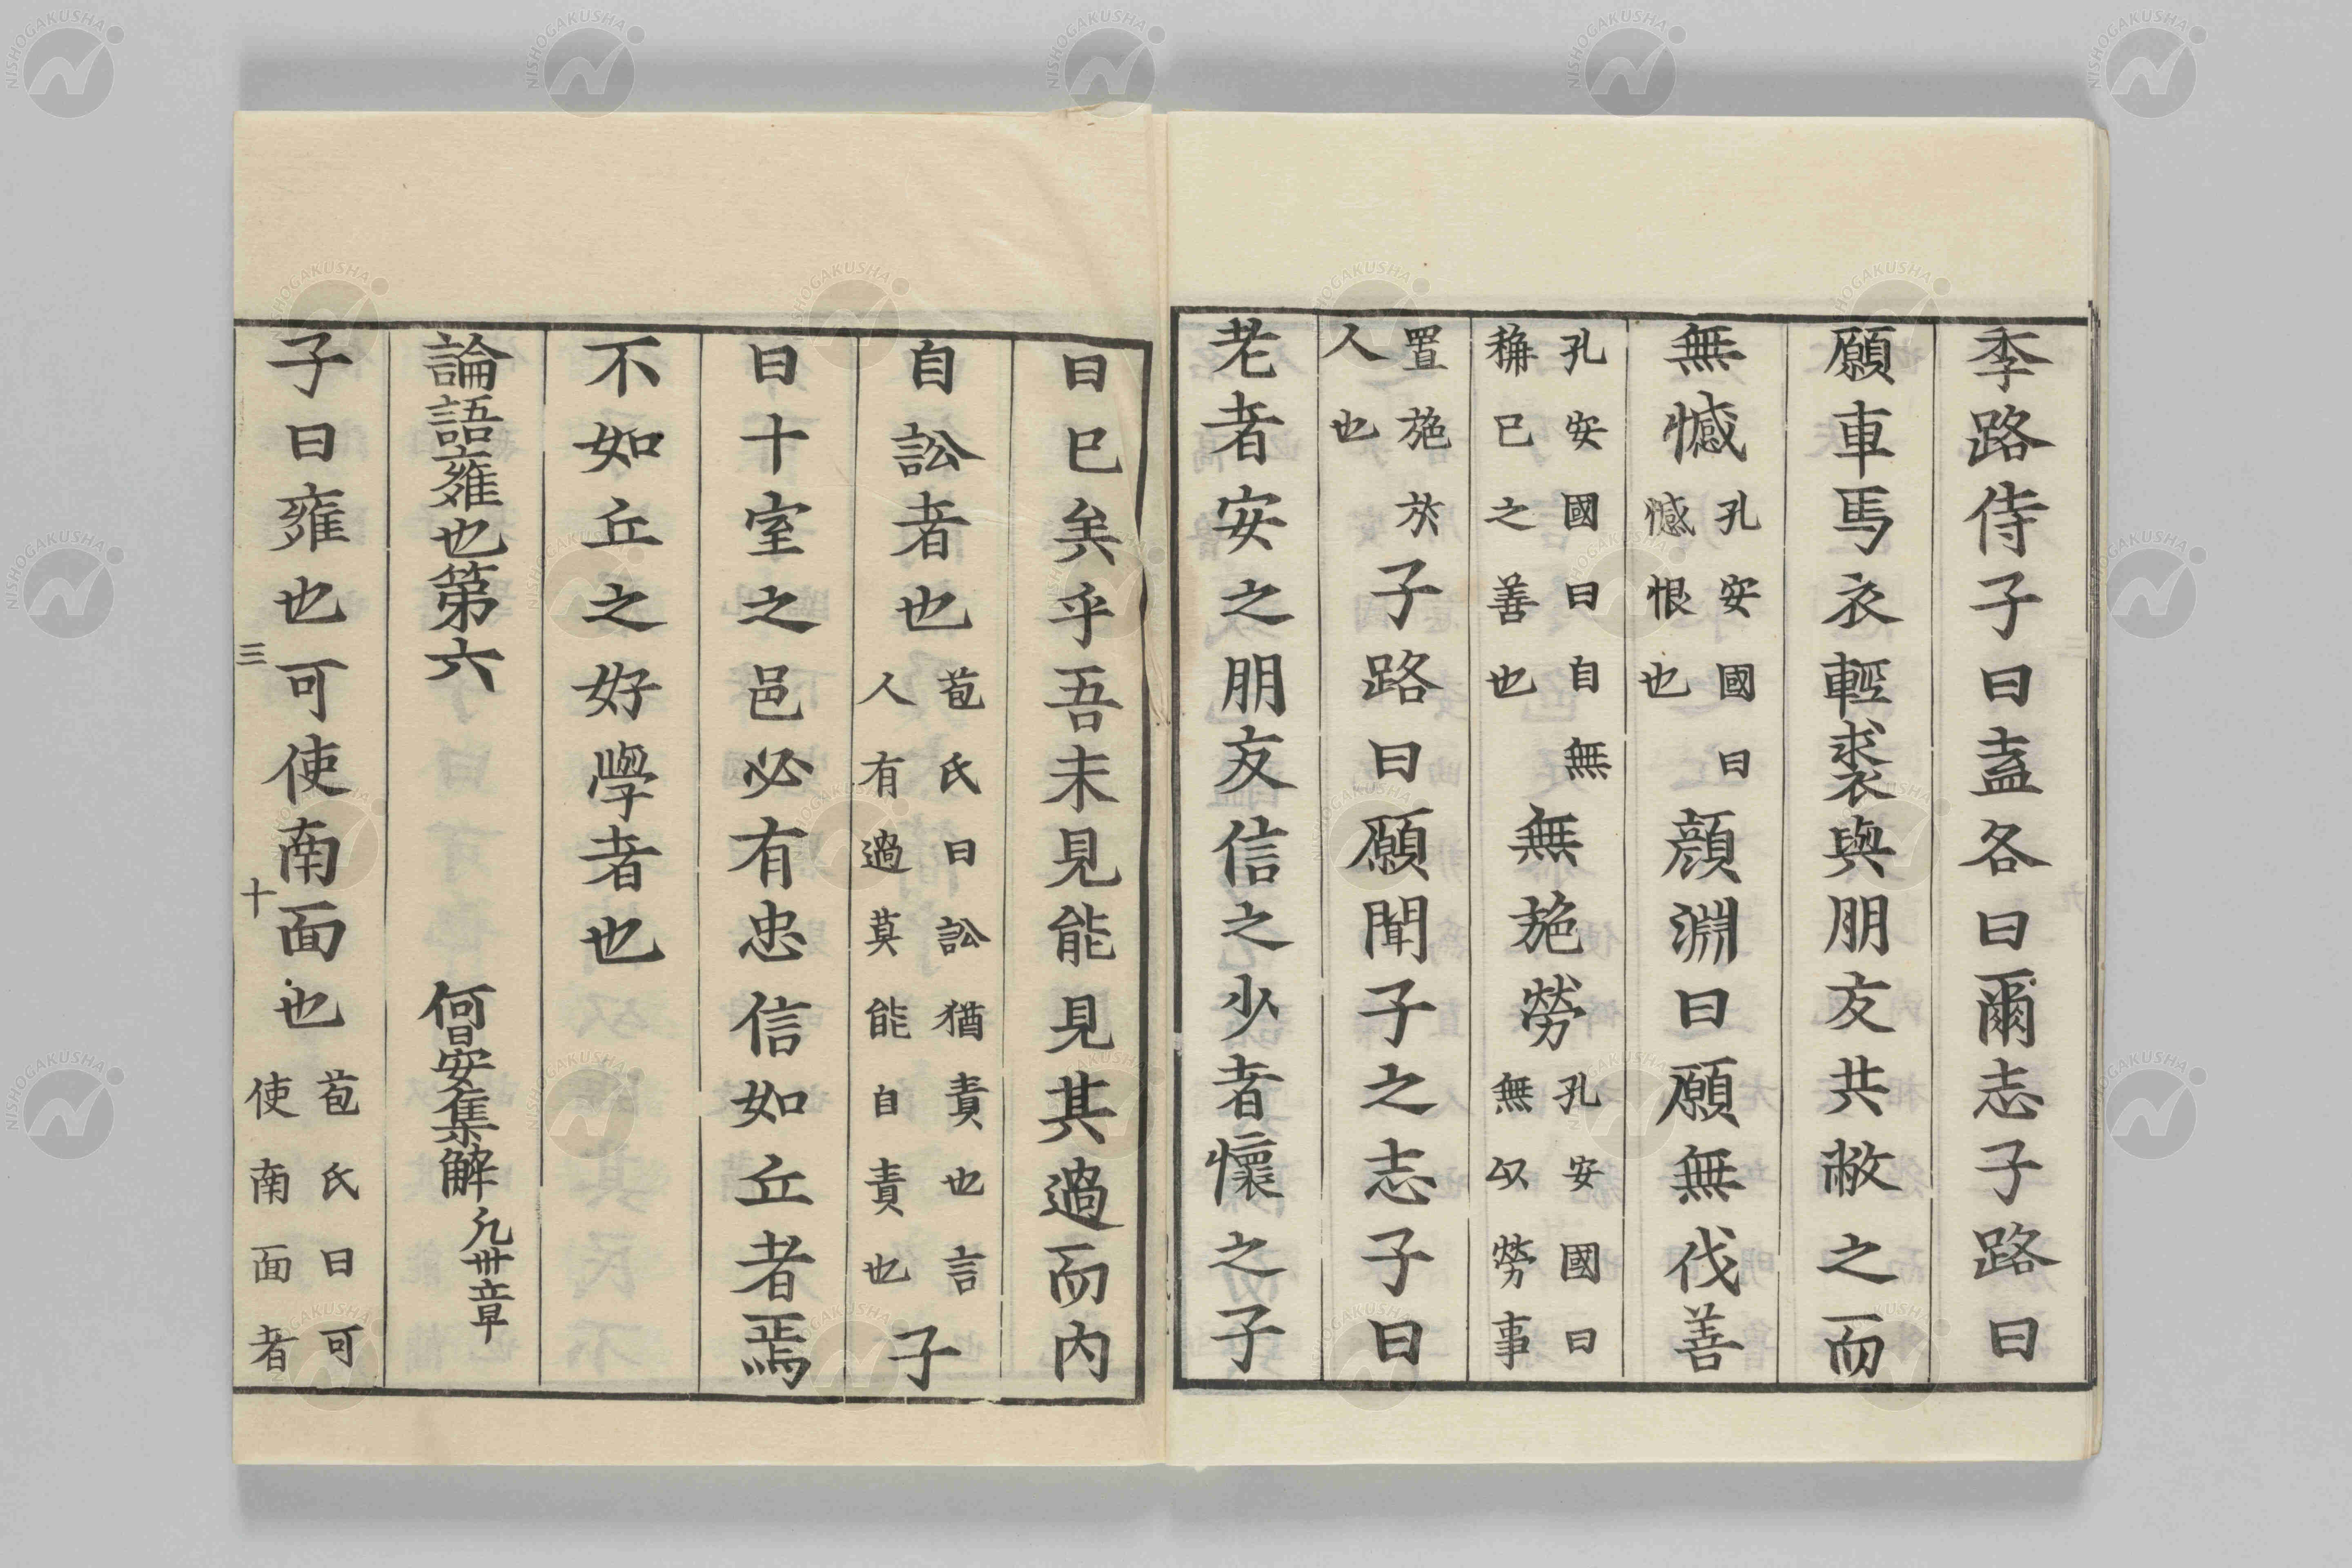 季路侍子曰盍各曰爾志子路曰
願車馬衣輕裘與朋友共敝之而
無憾孔安國曰憾恨也顔淵曰願無伐善
孔安國曰自無稱己之善也無施勞孔安國曰無以勞事
置施於人也子路曰願聞子之志子曰
老者安之朋友信之少者懷之子
曰已矣乎吾未見能見其過而内
自訟者也苞氏曰訟猶責也言人有過莫能自責也子
曰十室之邑必有忠信如丘者焉
不如丘之好學者也
論語雍也第六 何晏集解凡卅章
子曰雍也可使南面也苞氏曰可使南面者
三 十
NISHOGAKUSHA